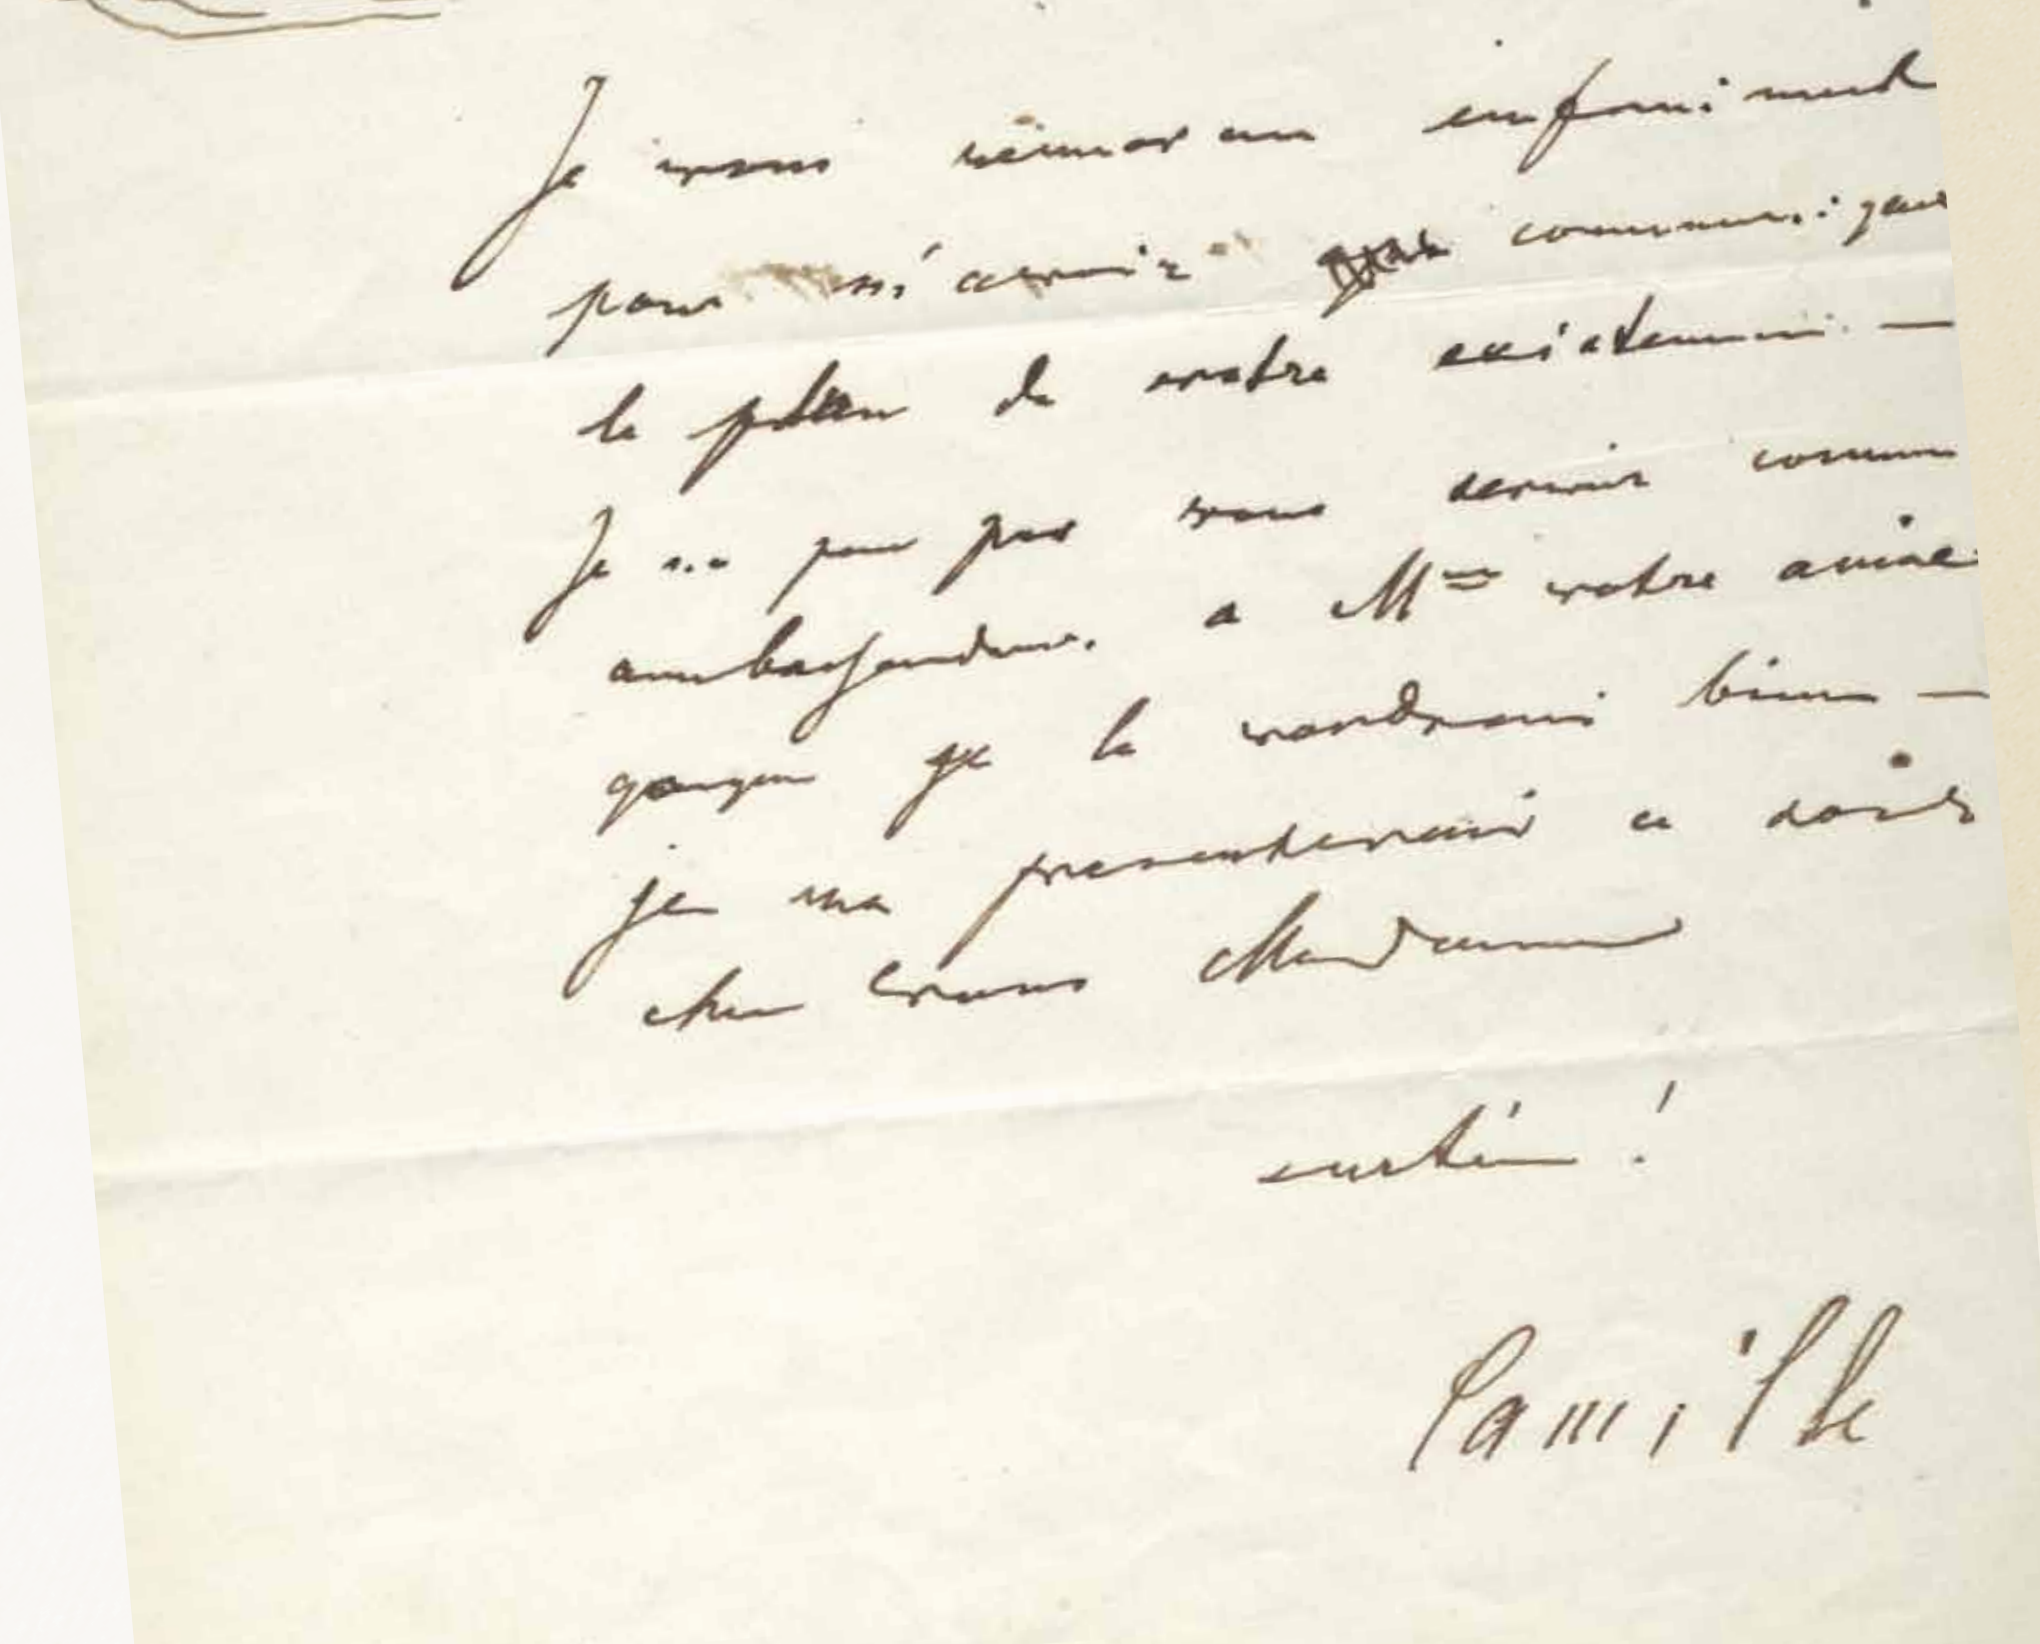 Je vous remercie infiniment
pour m'avoir communiqué
le plan de votre
Je ne peu pas vous servir comme
ambassadeur. a Mme votre amie
quoique je le voudrais bien —
je me presenterais ce soir
chez vous Madame
Camille